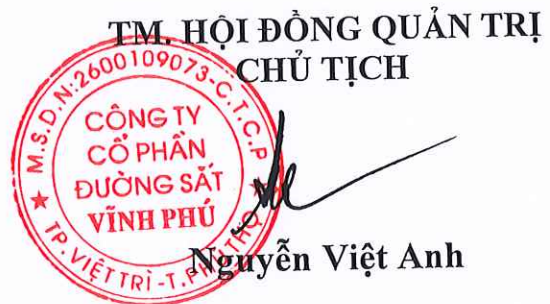 TM. HỘI ĐỒNG QUẢN TRỊ
CHỦ TỊCH
M.S.D.N:2600109073-C.T.C.P
CÔNG TY
CỔ PHẦN
ĐƯỜNG SẮT
VĨNH PHÚ
TP.VIỆT TRÌ-T.PHÚ THỌ
Nguyễn Việt Anh